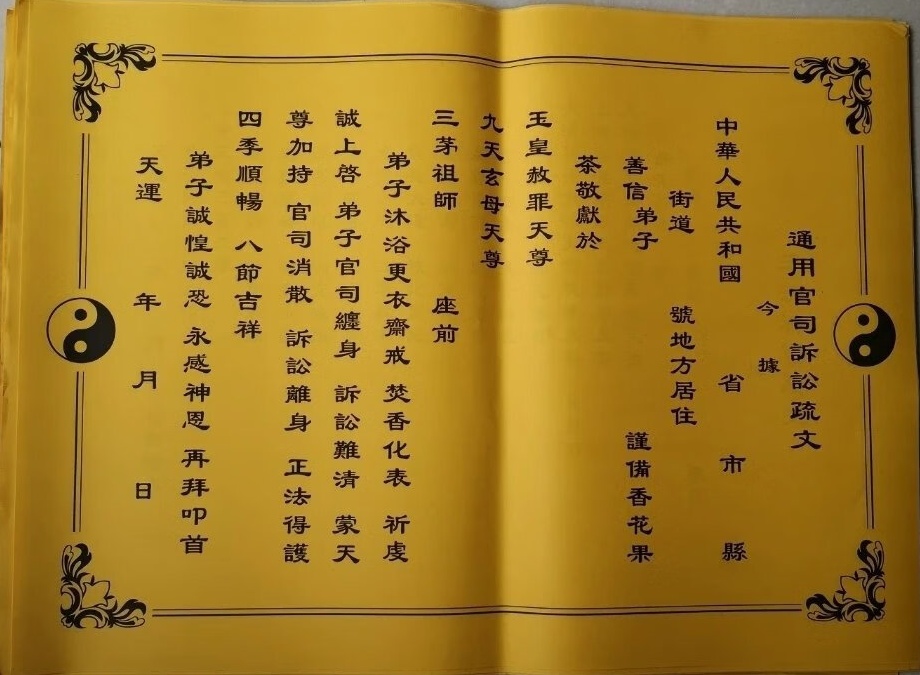 通用官司訴訟疏文
今據
中華人民共和國 省 市 縣
街道 號地方居住
善信弟子 謹備香花果
茶敬獻於
玉皇赦罪天尊
九天玄母天尊
三茅祖師 座前
弟子沐浴更衣齋戒 焚香化表 祈虔
誠上啓 弟子官司纏身 訴訟難清 蒙天
尊加持 官司消散 訴訟離身 正法得護
四季順暢 八節吉祥
弟子誠惶誠恐 永感神恩 再拜叩首
天運 年 月 日